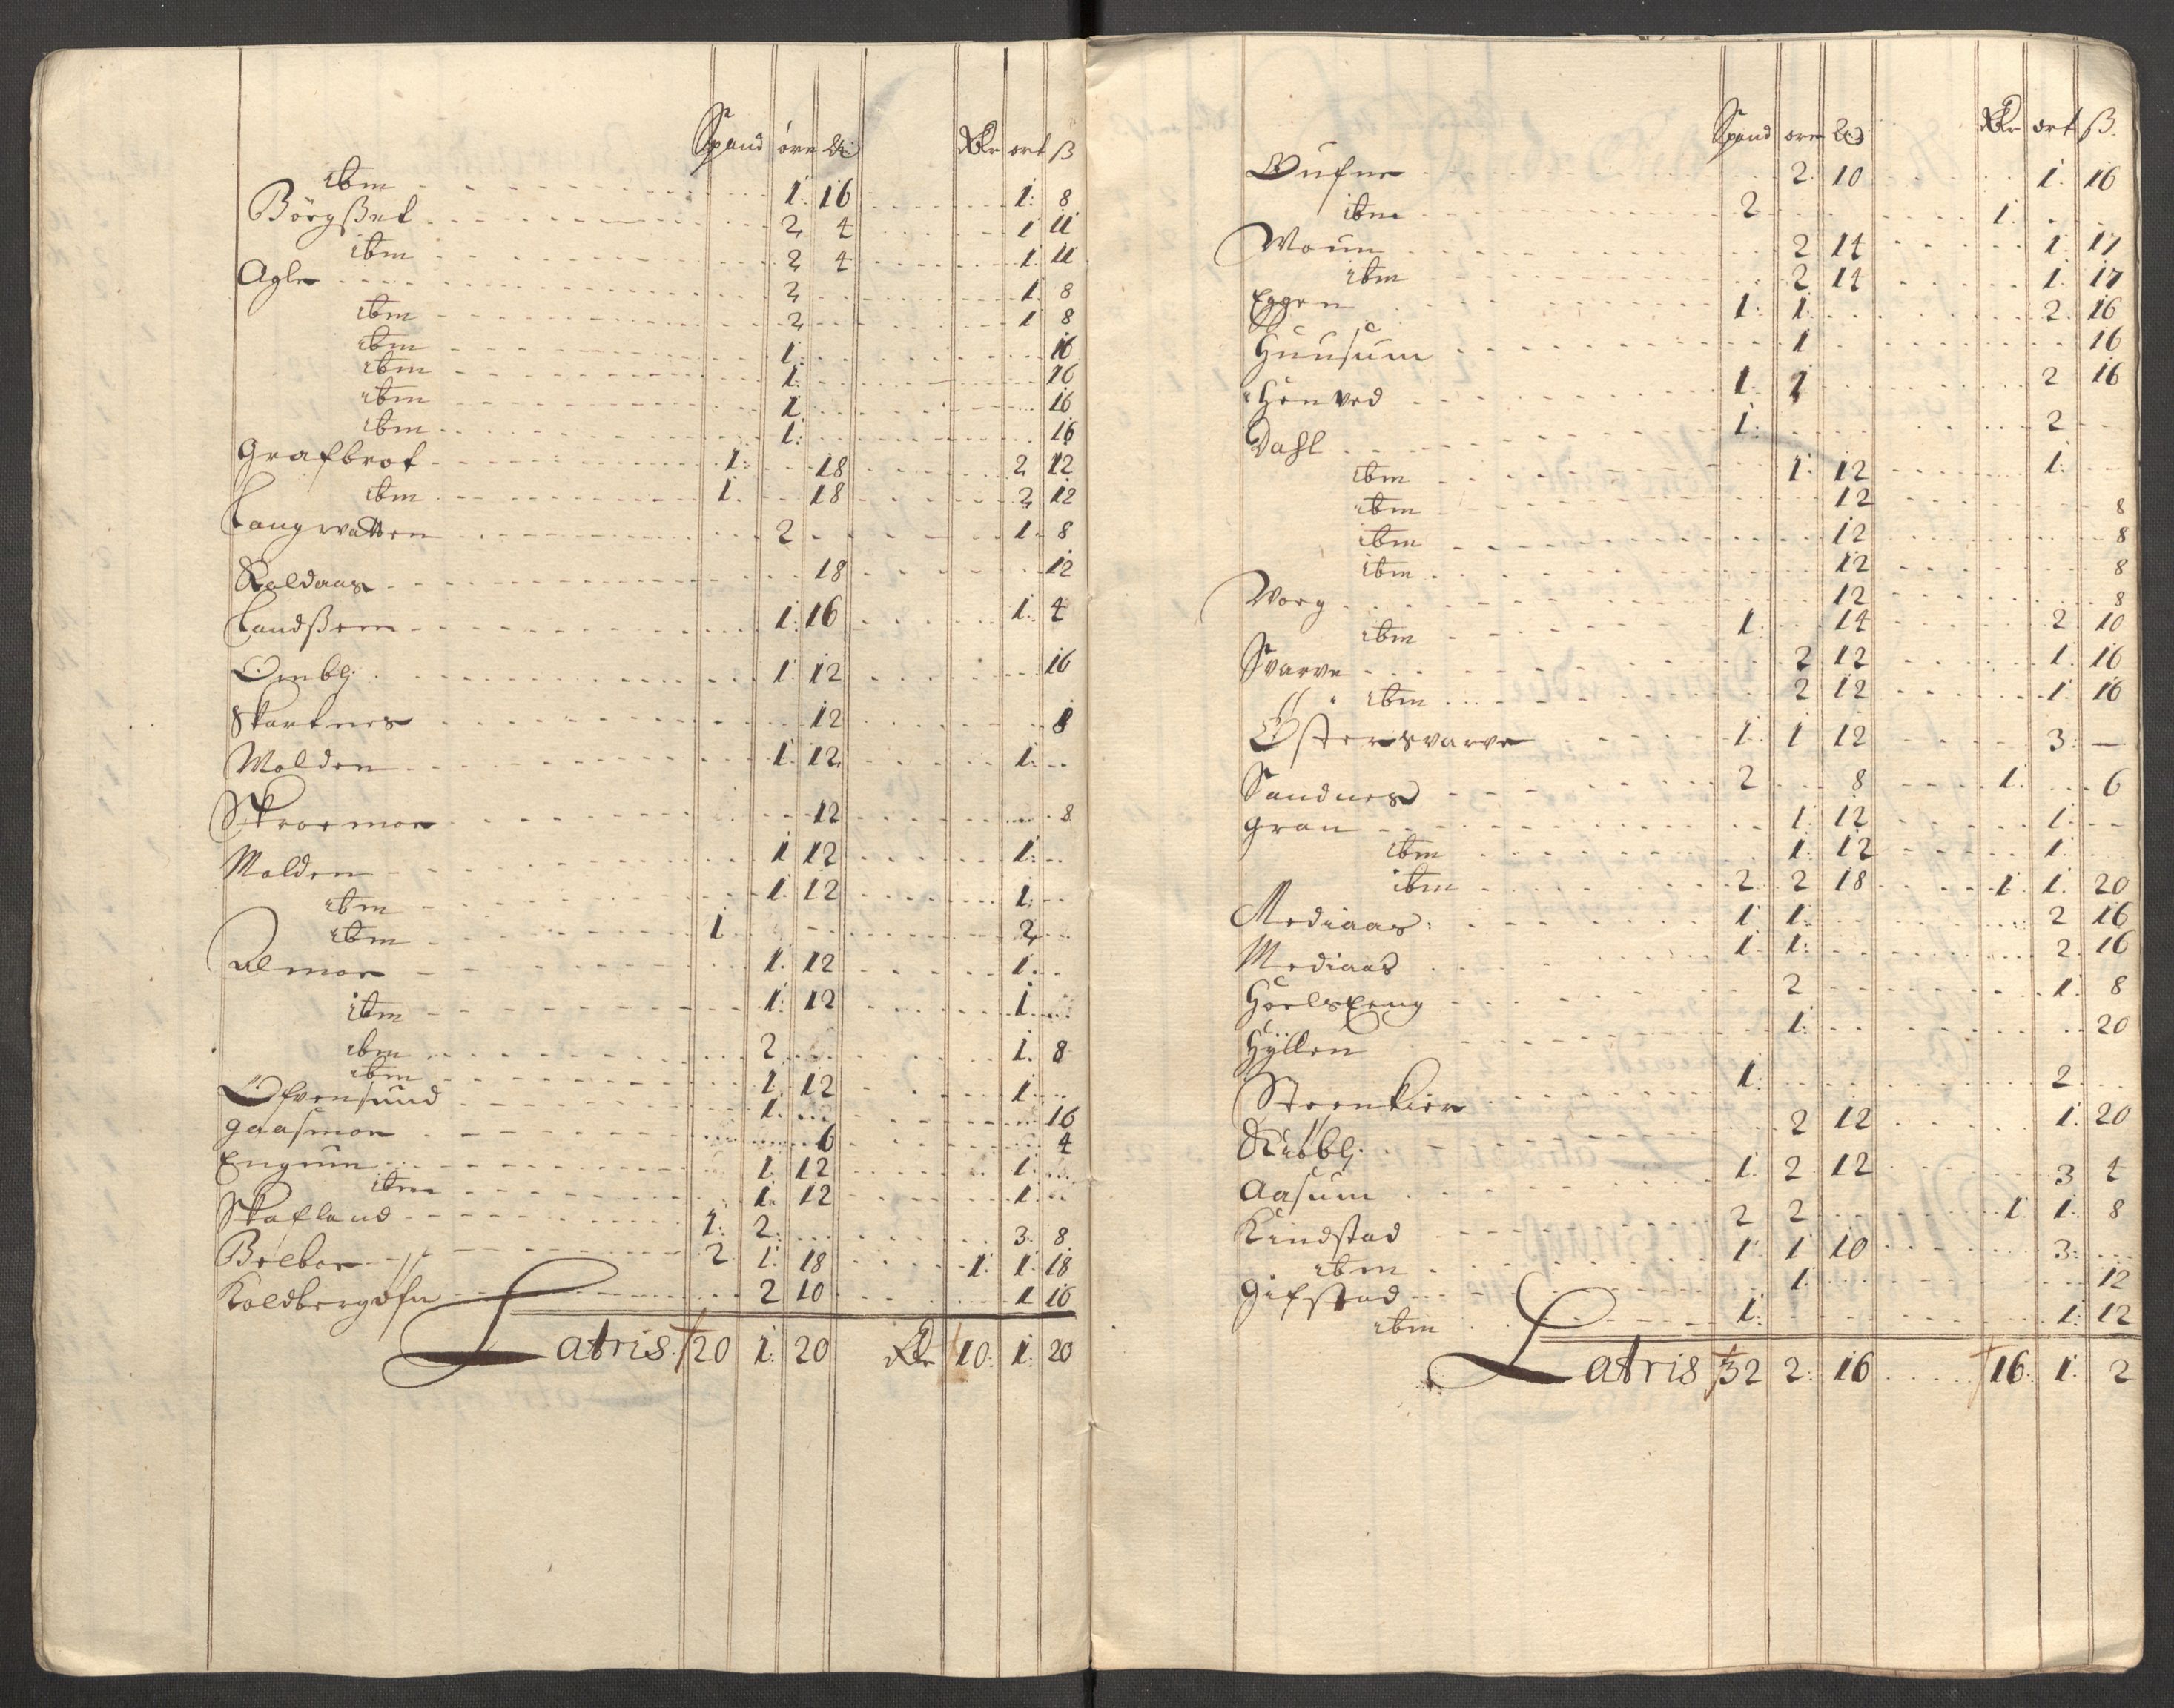 Spand öre Rdr ort ß
ibm 1: 16 1: 8
Börgßet 2 4 1 11
ibm 2 4 1: 11
Agle 2 1: 8
ibm 2 1 8
ibm 1: 16
ibm 1: 16
ibm 1 16
ibm 1: 16
Grafbrot 1: 18 2 12
ibm 1: 18 2 12
Langwatten 2 1: 8
Roldaas 18 12
Landßem 1: 16 1: 4
Ombli 1 12 16
Skartnes 12 8
Molden 1: 12 1:
Skroemoe 12 8
Molden 1 12 1:
ibm 1: 12 1:
ibm 1 2
Lemoe 1: 12 1:
ibm 1: 12 1
ibm 2 1: 8
ibm 1 12 1:
Öfvensund 1: 16
Gaasmoe 6 4
Engum 1: 12 1:
ibm 1: 12 1:
Skafland 1: 2: 3: 8
Breboe 2 1: 18 1: 1: 18
Koldbergofn 2 10 1 16
Latris 20 1: 20 Rdr 10: 1: 20
Spand öre Rdr ort ß
Oufne 2 10 1: 16
ibm 2 1:
Moun 2 14 1: 17
ibm 2 14 1: 17
Eggen 1: 1: 2 16
Huusum 1 16
Henved 1: 1 2 16
Dahl 1: 2
ibm 1: 12 1:
ibm 12 8
ibm 12 8
ibm 12 8
Worg 12 8
ibm 1: 14 2 10
Svarve 2 12 1: 16
ibm 2 12 1: 16
Östersvarve 1: 1 12 3: —
Sandnes 2 8 1: 6
Gran 1: 12 1:
ibm 1: 12 1:
ibm 2 2 18 1: 1: 20
Mediaas 1 1: 2 16
Mediaas 1 1: 2 16
Hoelsheng 2 1: 8
Hÿllen 1: 20
Steenkier 1: 2
Rübbli 2 12 1: 20
Aasum 1: 2 12 3 4
Kindstad 2 2 1 1: 8
ibm 1: 1 10 3:
Gifstad 1: 12
ibm 1: 1: 12
Latris 32 2: 16 16: 1: 2